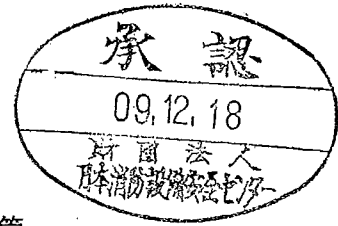 承認
09.12.18
財団法人
日本消防設備安全センター